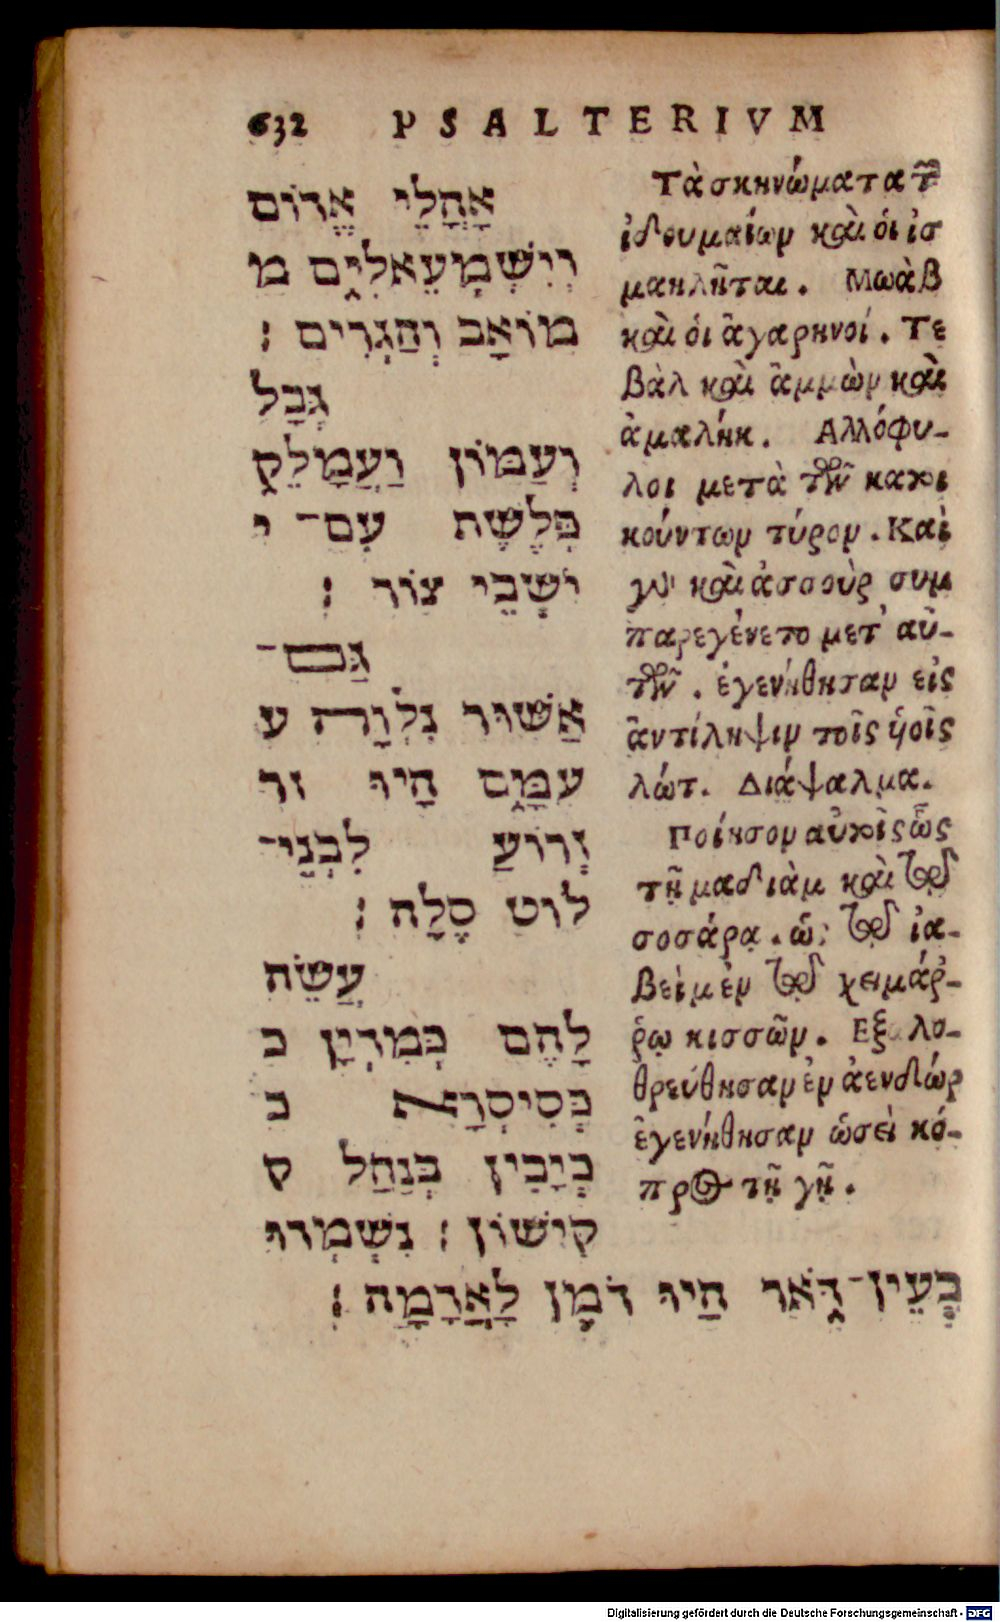 632 PSALTERIVM
אָהֳלֵי אֱדוֹם
וְיִשְׁמְעֵאלִים מ
מוֹאָב וְהַגְרִים :
גְּבָל
וְעַמּוֹן וַעֲמָלֵק
פְּלֶשֶׁת עִם־ י
יֹשְׁבֵי צוֹר :
גַּם־
אַשּׁוּר נִלְוָה ע
עִמָּם הָיוּ זר
זְרוֹעַ לִבְנֵי־
לוֹט סֶלָה :
עֲשֵׂה
לָהֶם כְּמִדְיָן כ
כְּסִיסְרָא כ
כְּיָבִין בְּנַחַל ק
קִישׁוֹן : נִשְׁמְדוּ
בְעֵין־דֹּאר הַיוּ דֹּמֶן לָאֲדָמָה :
Τὰ σκηνώματα τῶν
ἰδουμαίων καὶ οἱ ἰσ
μαηλῆται. Μωὰβ
καὶ οἱ ἀγαρηνοί. Γε
βὰλ καὶ ἀμμὼν καὶ
ἀμαλήκ. Αλλόφυ-
λοι μετὰ τῶν κατοι
κούντων τύρον. Καὶ
γὰρ καὶ ἀσσοὺρ συμ
παρεγένετο μετ' αὐ-
τῶν. ἐγενήθησαν εἰς
ἀντίληψιν τοῖς ὑοῖς
λώτ. Διάψαλμα.
Ποίησον αὐτοῖς ὡς
τῇ μαδιὰμ καὶ τῷ
σοσάρᾳ. ὡς τῷ ἰα-
βεὶμ ἐν τῷ χειμάῤ-
ῥῳ κισσῶν. Εξολο-
θρεύθησαν ἐν ἀενδώρ
ἐγενήθησαν ὡσεὶ κό-
προς τῇ γῇ.
Digitalisierung gefördert durch die Deutsche Forschungsgemeinschaft - DFG